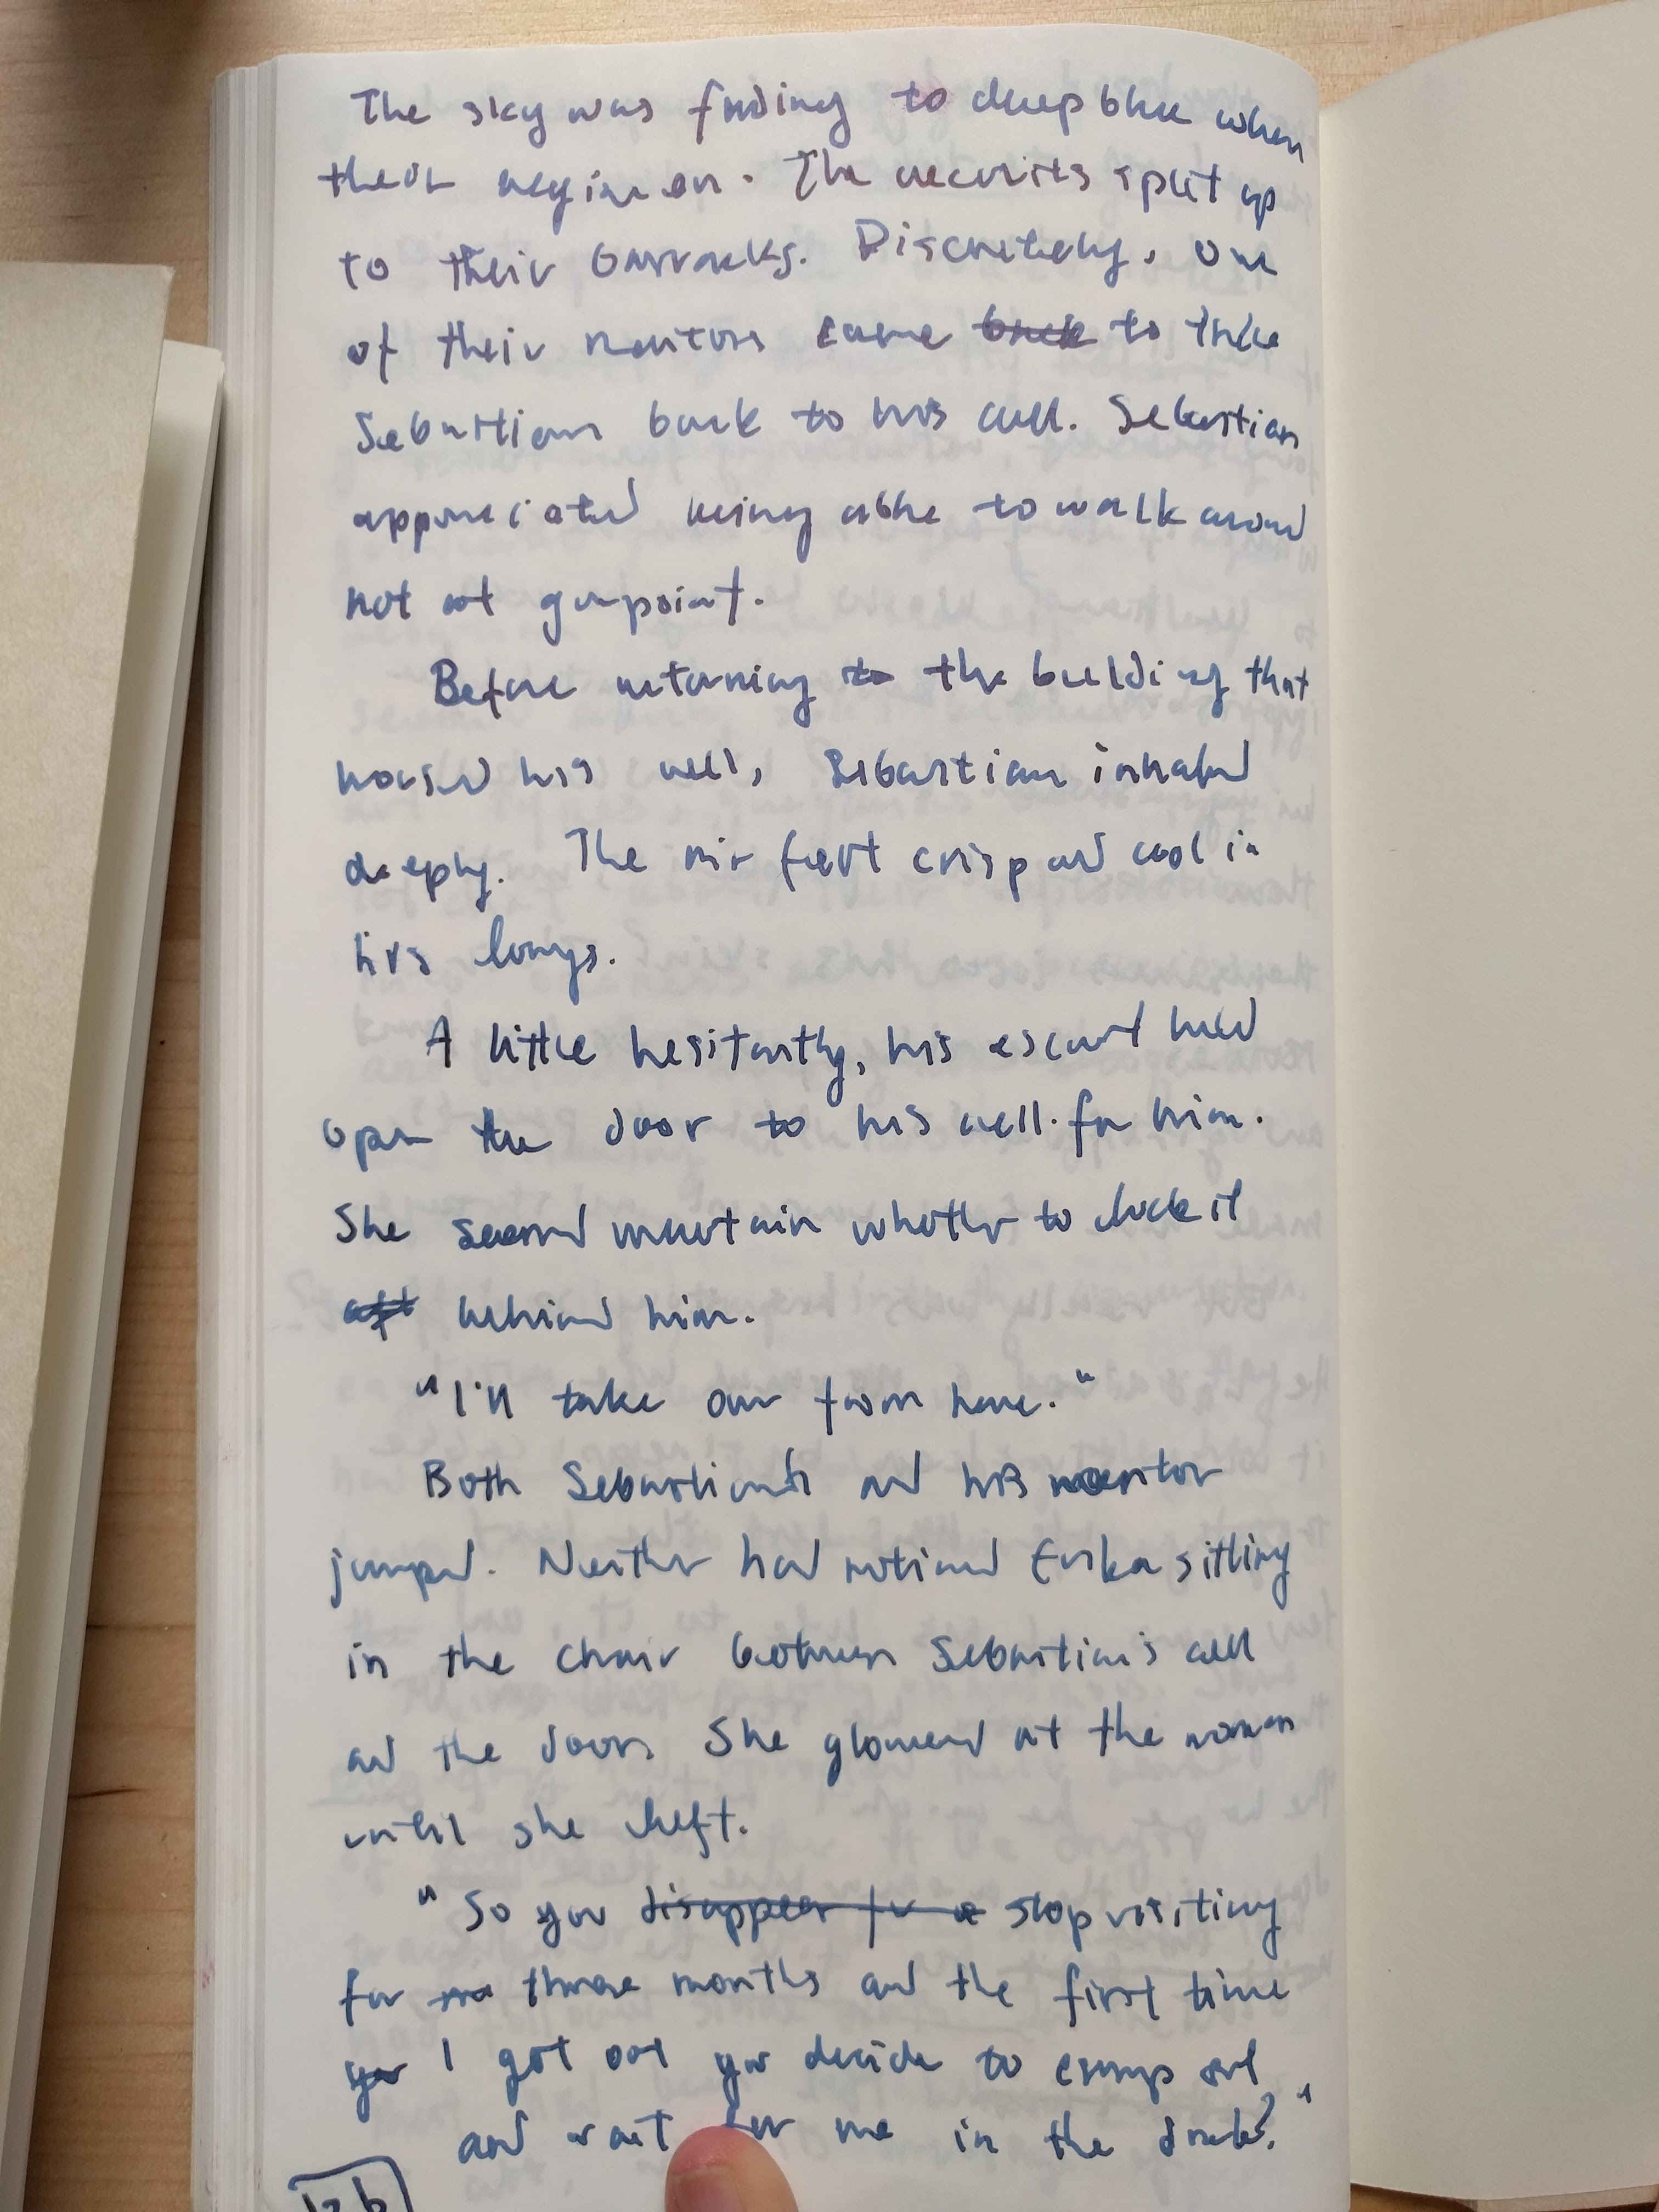 The sky was fading to deep blue when
their regimen. The recruits split up
to their barracks. Discretely, one
of their monitors came back to take
Sebastian back to his cell. Sebastian
appreciated being able to walk around
not at gunpoint.
Before returning to the building that
housed his cell, Sebastian inhaled
deeply. The air felt crisp and cool in
his lungs.
A little hesitantly, his escort held
open the door to his cell for him.
She seemed uncertain whether to lock it
aft behind him.
"I'll take over from here."
Both Sebastian and his monitor
jumped. Neither had noticed Erika sitting
in the chair between Sebastian's cell
and the door. She glowered at the woman
until she left.
"So you disappear for a stop visiting
for three months and the first time
you I got out you decide to camp out
and wait for me in the dark?"